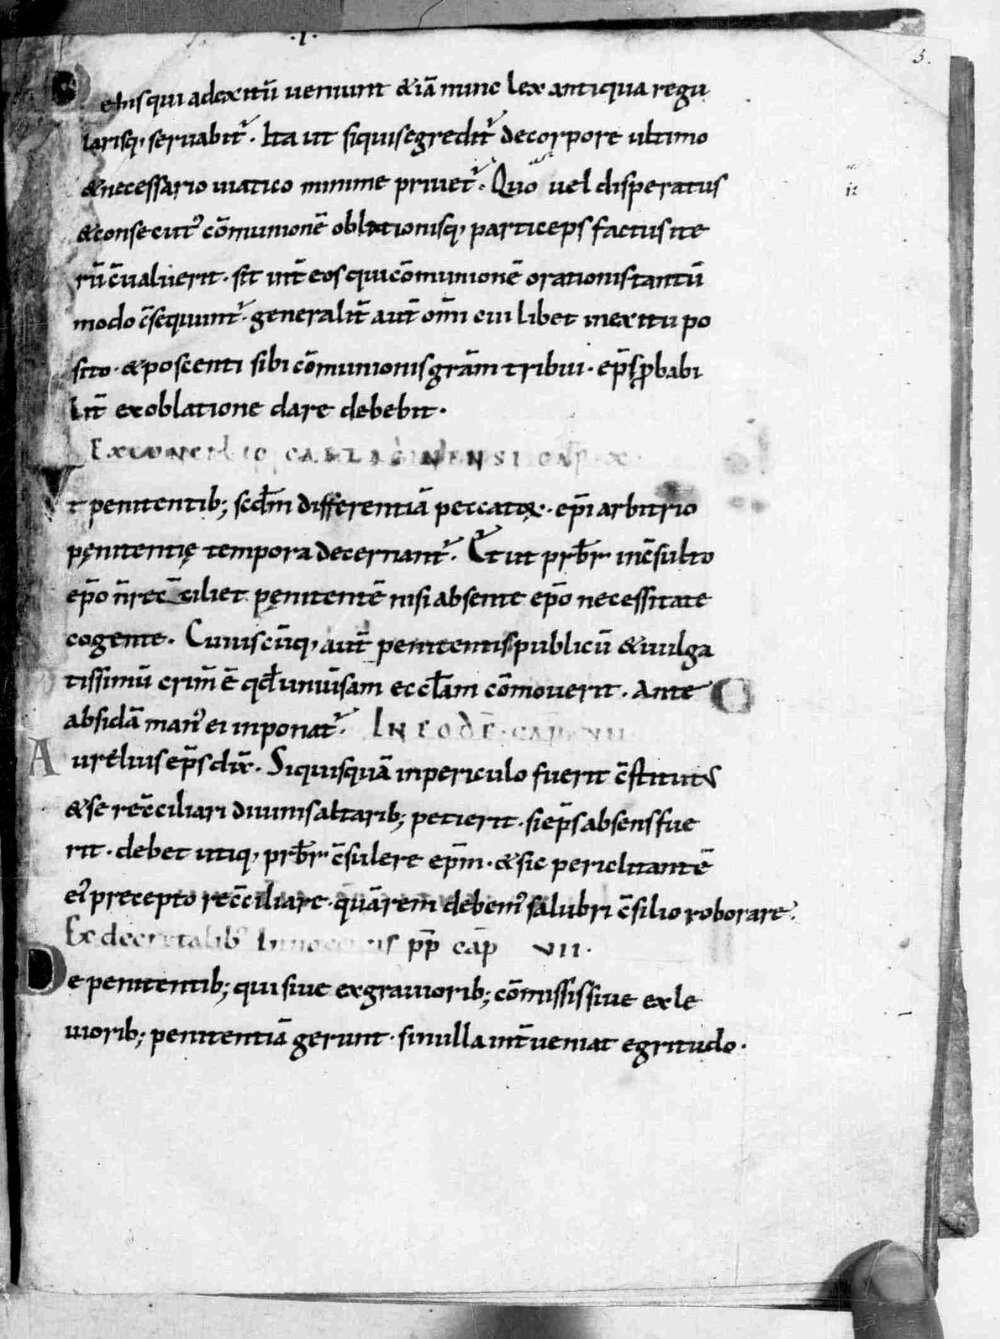 .I.
5.
De his qui ad exitū veniunt &iā nunc lex antiqua regu
larisq; servabit᷑. Ita ut siquis egredit᷑ de corpore ultimo
&necessario viatico minime privet᷑. Quo vel disperatus
&consecut᷒ cōmunionē oblationisq; particeps factus ite
rū c̄valuerit. sit int̄ eos qui cōmunionē orationis tantū
modo c̄sequunt᷑. generalit̄ aut̄ om̄i cui libet in exitu po
sito. &poscenti sibi cōmunionis grām tribui. ep̄s ꝓbabi
lit̄ ex oblatione dare debebit.
EX CONCILIO CARTAGINENSI CAP̄. X.
Vt penitentib; scd̄m differentiā peccatoꝝ. ep̄i arbitrio
pęnitentię tempora decernant᷑. Et ut prb̄r inc̄sulto
ep̄o n̄ rec̄ciliet pęnitentē nisi absente ep̄o necessitate
cogente. Cuiuscūq; aut̄ penitentis publicū &vulga
tissimū crim̄ ē qd̄ univ̄sam eccl̄am cōmoverit. Ante
absidā man᷒ ei inponat᷑. IN EODĒ. CAP̄. VII
Aurelius ep̄s dix̄. Siquisquā in periculo fuerit c̄stitut᷒
&se rec̄ciliari divinis altarib; petierit. si ep̄s absens fue
rit. debet utiq; prb̄r c̄sulere ep̄m. &sic periclitantē
ei᷒ precepto rec̄ciliare. quā rem debem᷒ salubri c̄silio roborare.
Ex decretalib᷒ Innocentis pp̄ cap̄ VII.
De penitentib; qui sive ex graviorib; cōmissis sive ex le
viorib; penitentiā gerunt. si nulla int̄veniat egritudo.